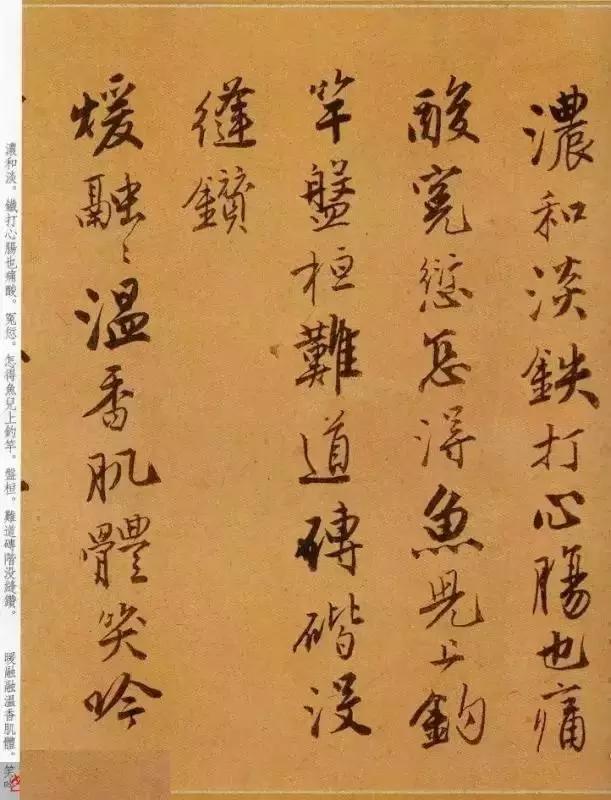 濃和淡鉄打心腸也痛
酸寃愆怎得魚兒上釣
竿盤桓難道磚階没
縫鑽
煖融〻溫香肌體笑吟
濃和淡。鐵打心腸也痛酸。冤愆。怎得魚兒上釣竿。盤桓。難道磚階没縫鑽。 暖融融溫香肌體。笑吟